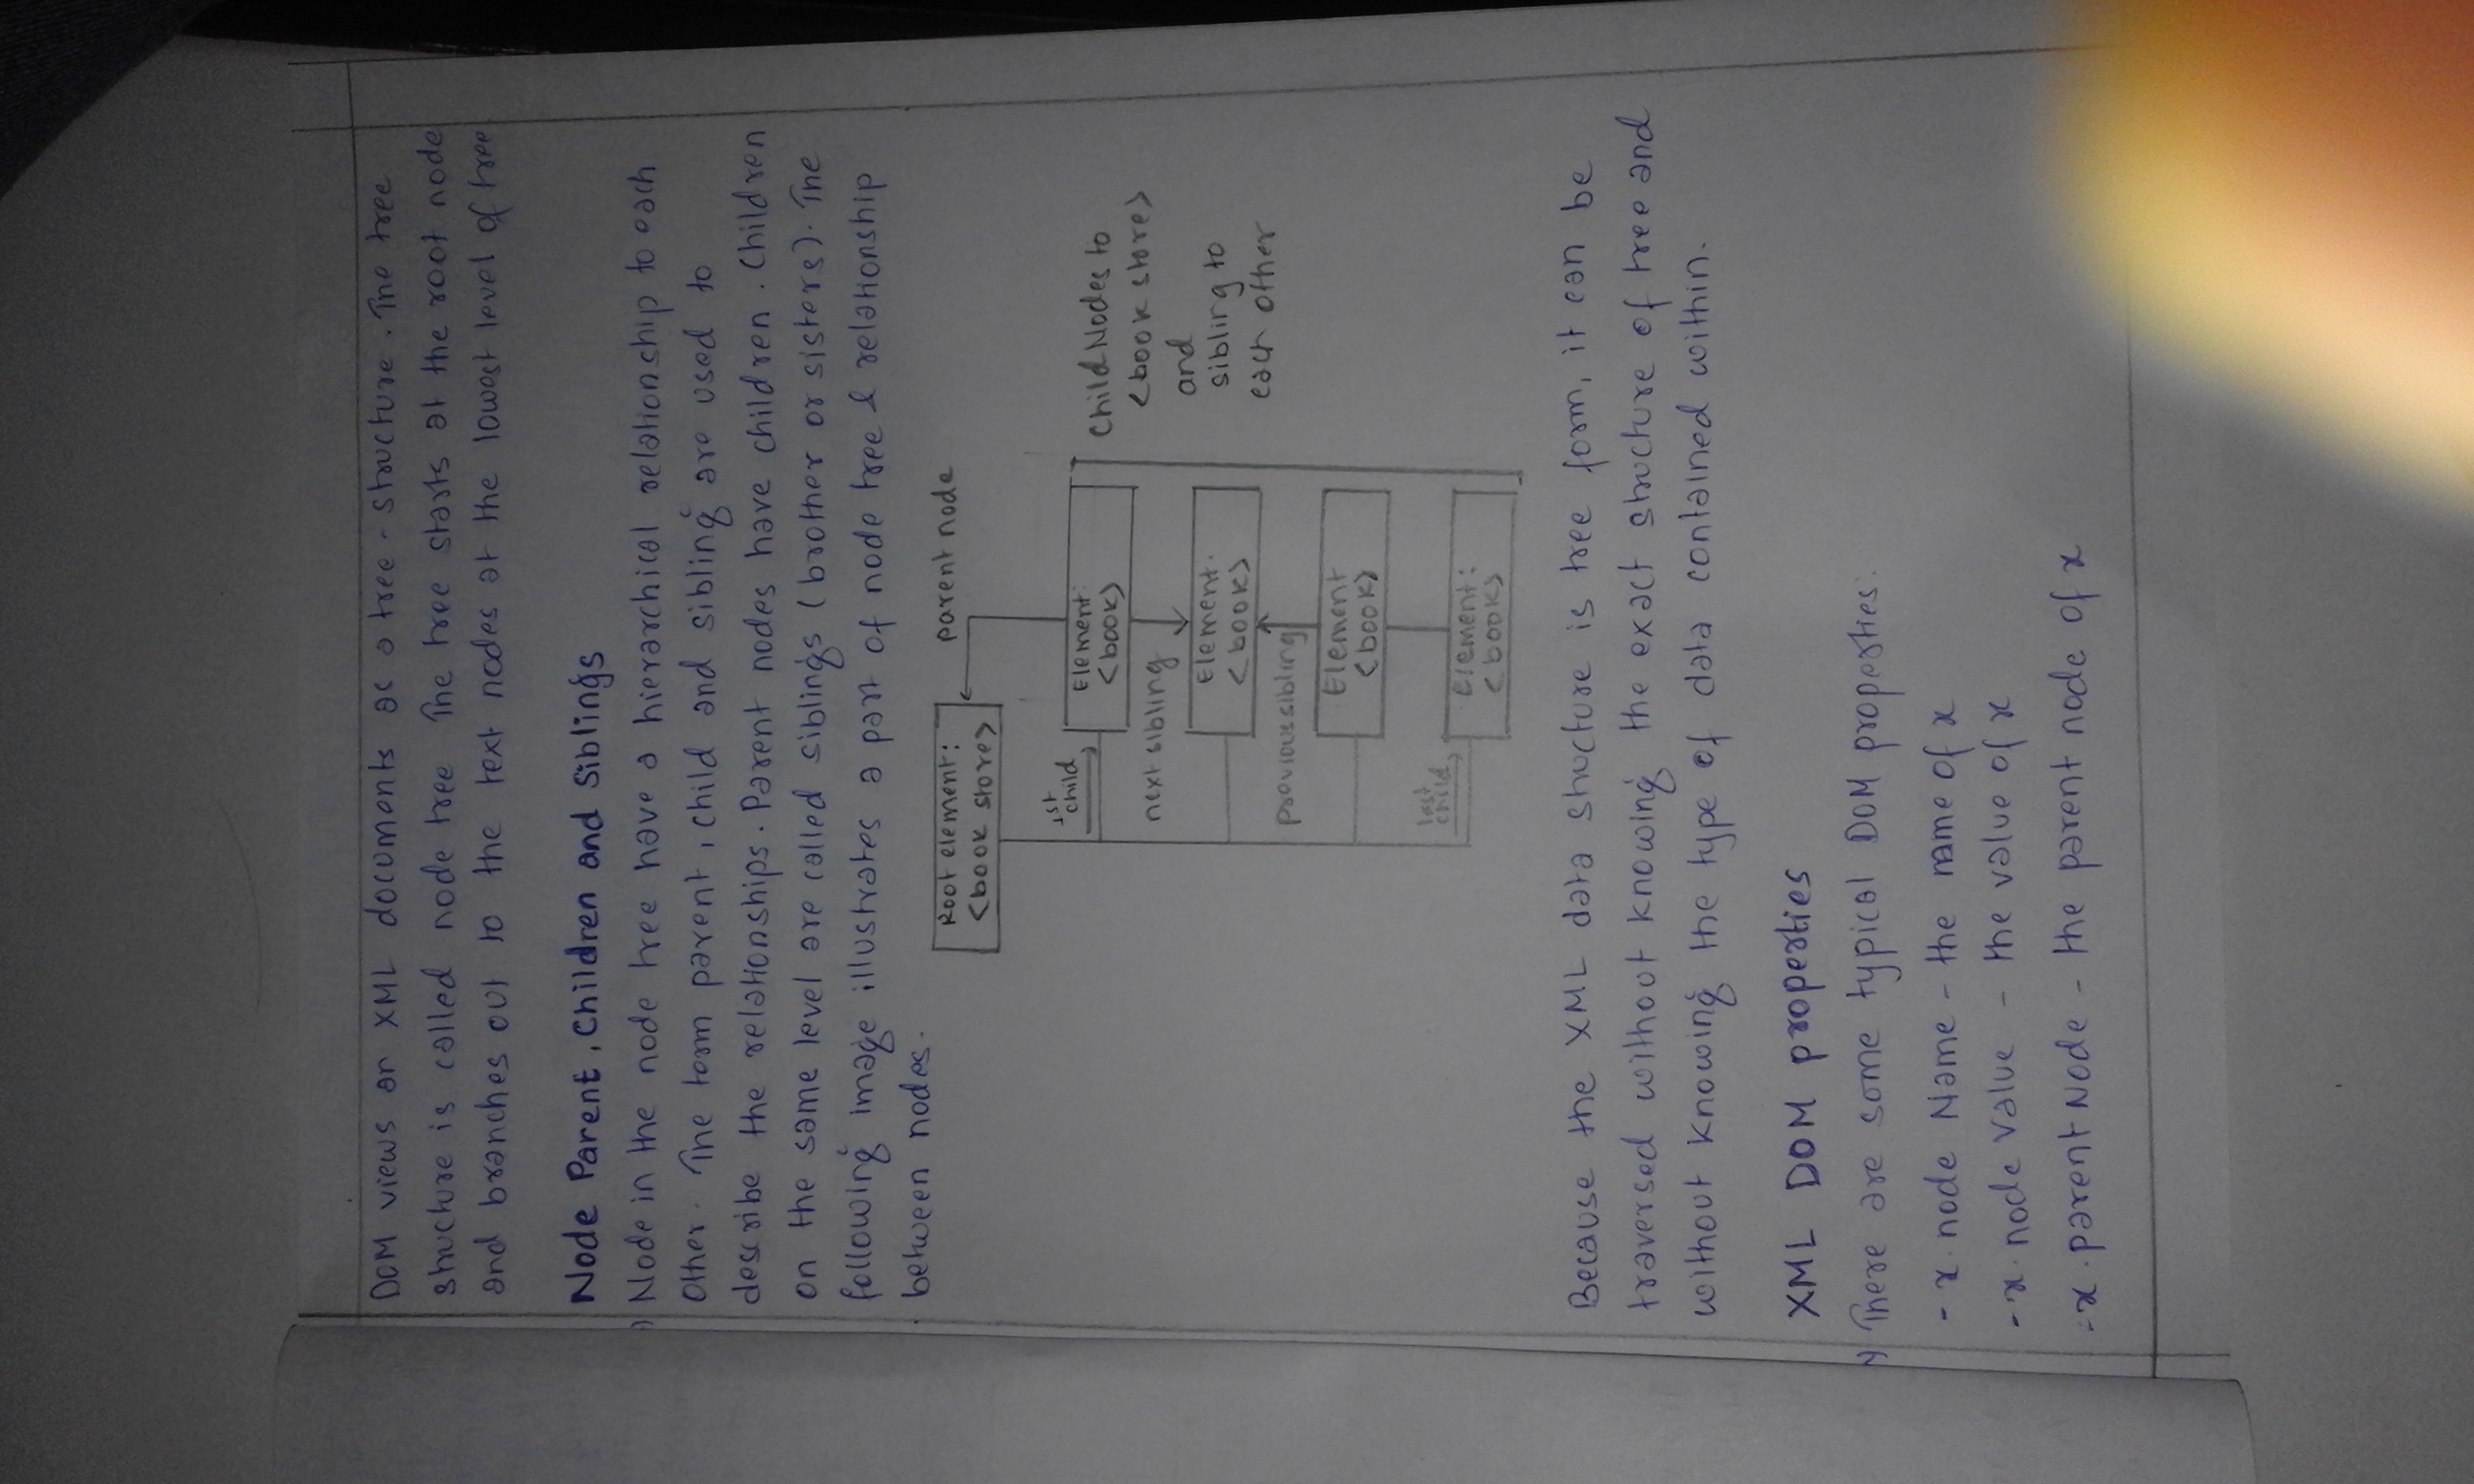 DOM views an XML documents as a tree - structure. The tree
structure is called node tree The tree starts at the root node
and branches out to the text nodes at the lowest level of tree
Node Parent, Children and Siblings
Node in the node tree have a hierarchical relationship to each
Other. The term parent, child and sibling are used to
describe the relationships. Parent nodes have children. Children
on the same level are called siblings (brother or sisters). The
following image illustrates a part of node tree & relationship
between nodes.
Root element:
<book store>
parent node
1st
child
Element:
<book>
next sibling
Element.
<book>
previous sibling
Element
<book>
last
child
Element:
<book>
Child Nodes to
<book store>
and
sibling to
each other
Because the XML data structure is tree form, it can be
traversed without knowing the exact structure of tree and
without knowing the type of data contained within.
XML DOM properties
There are some typical DOM properties:
- x. node Name - the name of x
- x. node Value - the value of x
- x. parent Node - the parent node of x